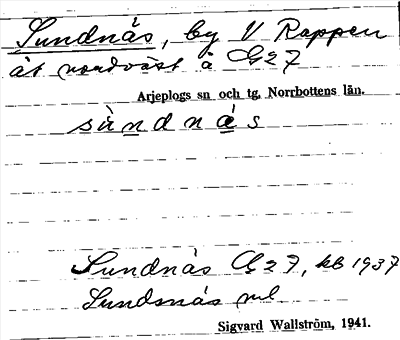 Sundnäs, by V Rappen
åt nordväst å G27
Arjeplogs sn och tg, Norrbottens län.
sùndnás
Sundnäs G27, kB 1937
Sundsnäs ml
Sigvard Wallström, 1941.